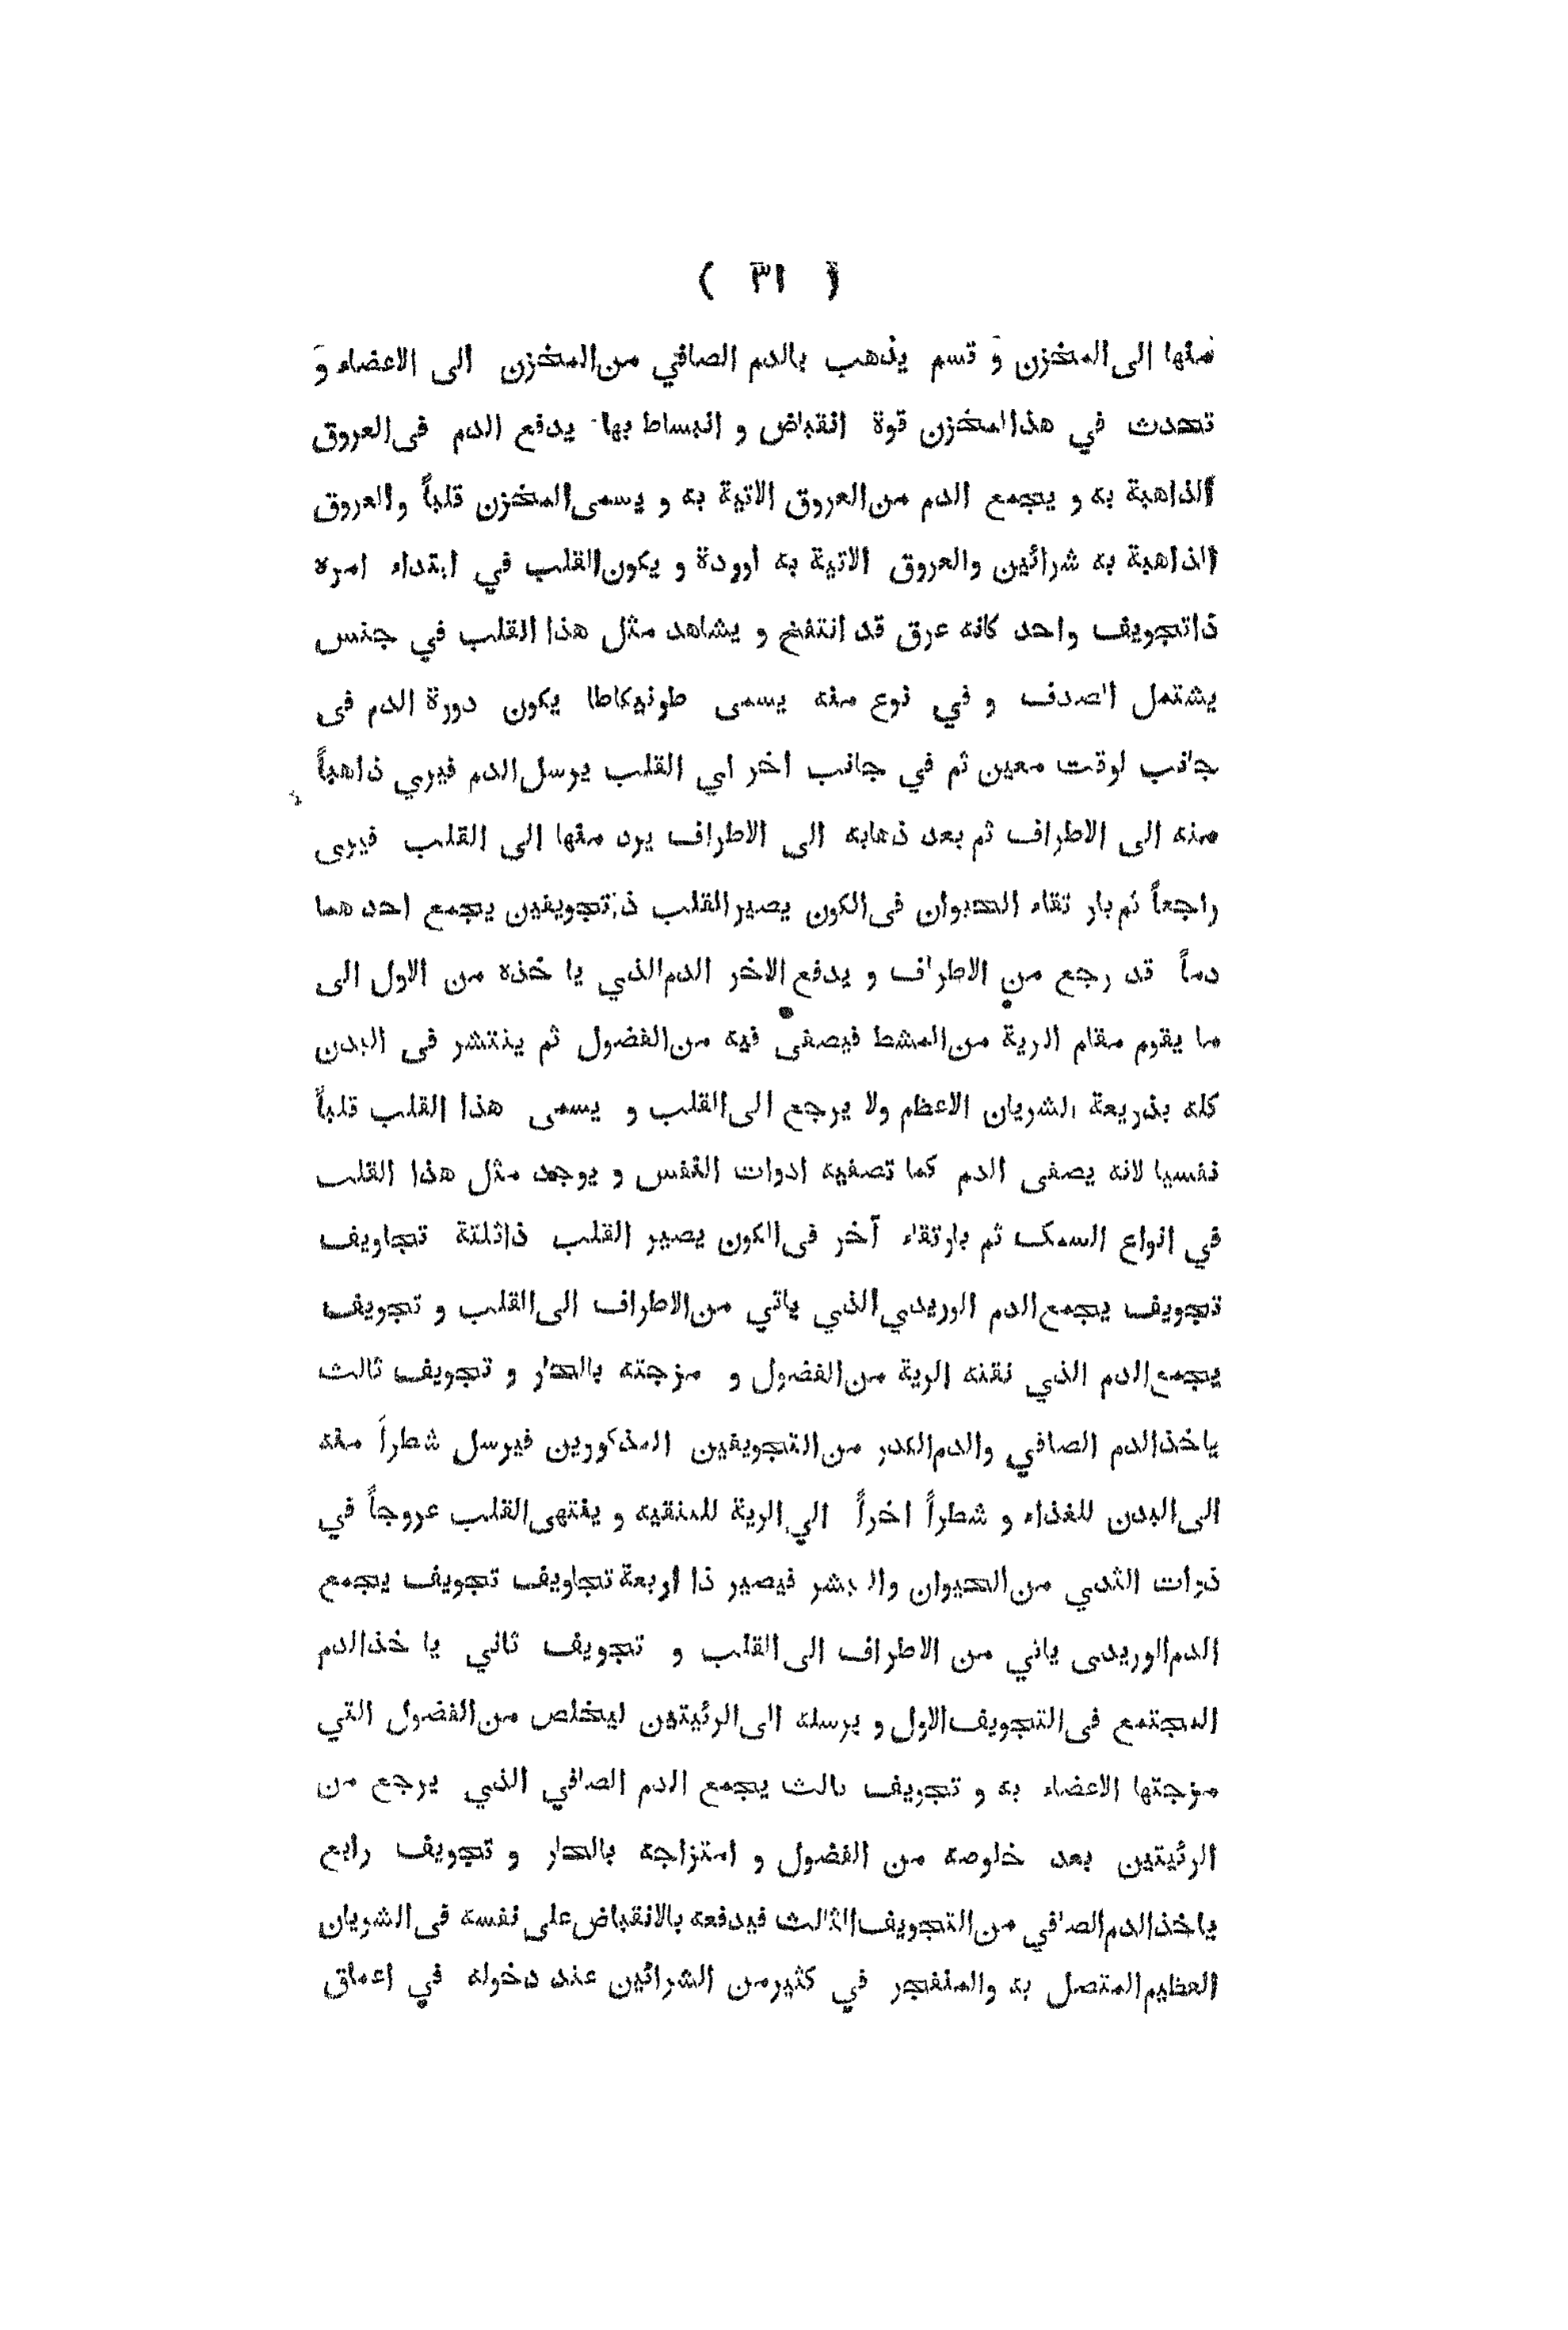 ( ٣١ )
منها الى المخزن و قسم يذهب بالدم الصافي من المخزن الى الاعضاء و
تحدث في هذا المخزن قوة انقباض و انبساط بها يدفع الدم فى العروق
الذاهبة به و يجمع الدم من العروق الاتية به و يسمى المخزن قلباً والعروق
الذاهبة به شرائين والعروق الاتية به اوردة و يكون القلب في ابتداء امره
ذا تجويف واحد كانه عرق قد انتفخ و يشاهد مثل هذا القلب في جنس
يشتمل الصدف و في نوع منه يسمى طونيكاطا يكون دورة الدم فى
جانب لوقت معين ثم في جانب اخر اي القلب يرسل الدم فيرى ذاهباً
منه الى الاطراف ثم بعد ذهابه الى الاطراف يرد منها الى القلب فيرى
راجعاً ثم بار تقاء الحيوان فى الكون يصير القلب ذا تجويفين يجمع احد هما
دماً قد رجع من الاطراف و يدفع الاخر الدم الذي يا خذه من الاول الى
ما يقوم مقام الرية من المشط فيصفى فيه من الفضول ثم ينتشر فى البدن
كله بذريعة الشريان الاعظم ولا يرجع الى القلب و يسمى هذا القلب قلباً
نفسيا لانه يصفى الدم كما تصفيه ادوات النفس و يوجد مثل هذا القلب
في انواع السمك ثم بارتقاء آخر فى الكون يصير القلب ذا ثلثة تجاويف
تجويف يجمع الدم الوريدي الذي ياتي من الاطراف الى القلب و تجويف
يجمع الدم الذي نقته الرية من الفضول و مزجته بالحار و تجويف ثالث
ياخذ الدم الصافي والدم الكدر من التجويفين المذكورين فيرسل شطراً منه
الى البدن للغذاء و شطراً اخراً الي الرية للتنقيه و ينتهى القلب عروجاً في
ذوات الثدي من الحيوان والبشر فيصير ذا اربعة تجاويف تجويف يجمع
الدم الوريدى ياتي من الاطراف الى القلب و تجويف ثاني يا خذ الدم
المجتمع فى التجويف الاول و يرسله الى الرئيتين ليخلص من الفضول التي
مزجتها الاعضاء به و تجويف ثالث يجمع الدم الصافي الذي يرجع من
الرئيتين بعد خلوصه من الفضول و امتزاجه بالحار و تجويف رابع
ياخذ الدم الصافي من التجويف الثالث فيدفعه بالانقباض على نفسه فى الشريان
العظيم المتصل به والمنفجر في كثير من الشرائين عند دخوله في اعماق